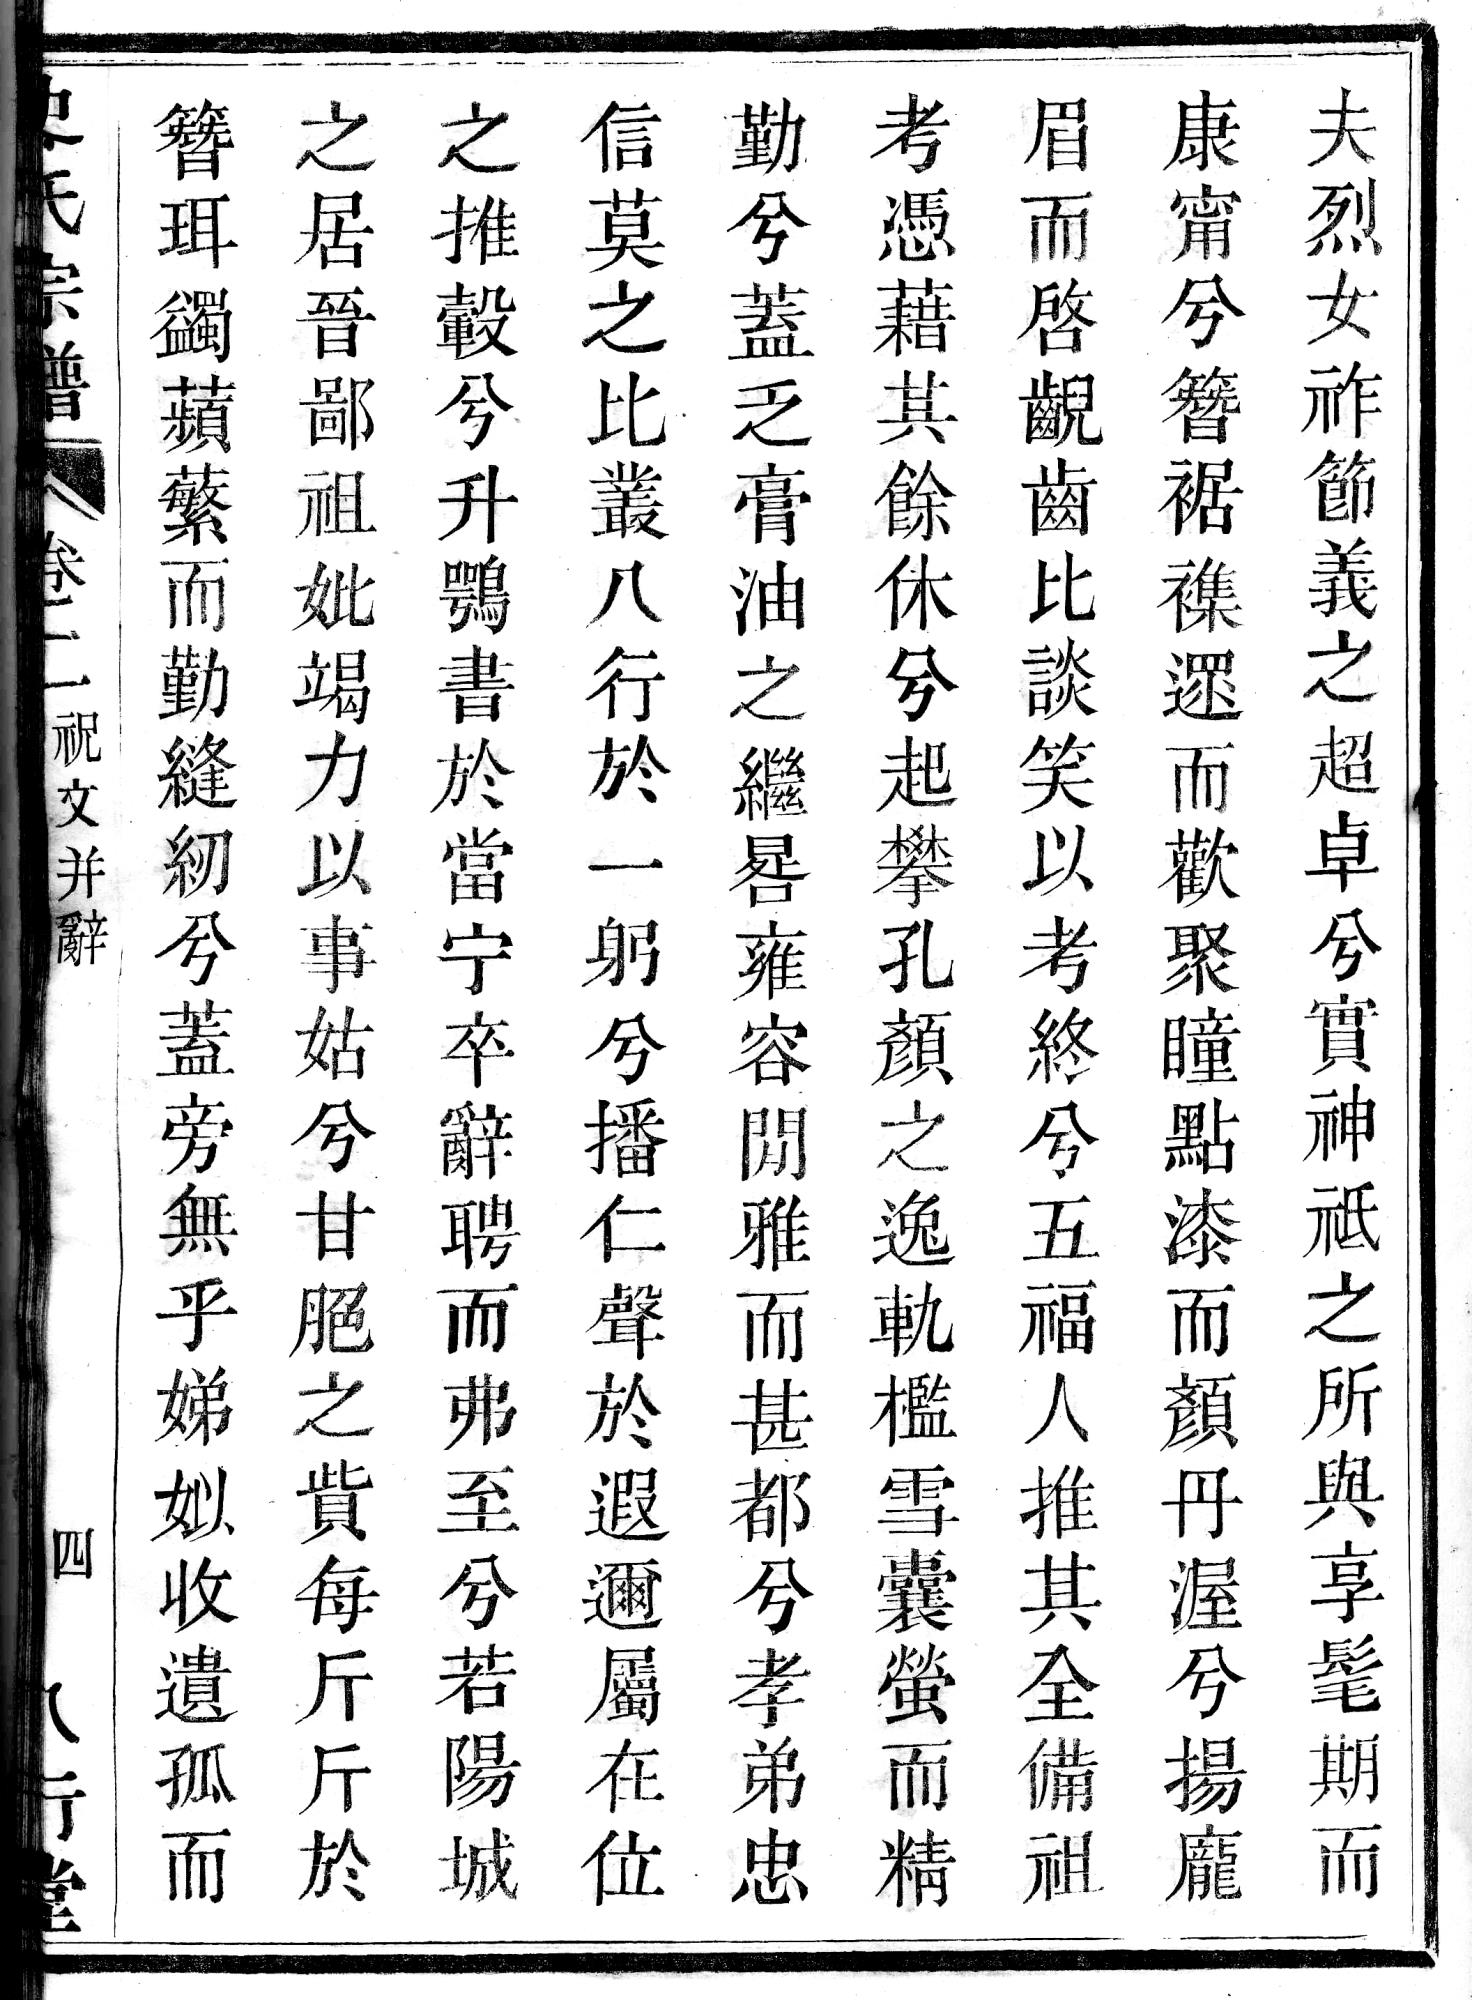 夫烈女祚節義之超卓兮實神祗之所與享髦期而
康甯兮簪裾襍遝而歡聚瞳點漆而顏丹渥兮揚龐
眉而啓齯齒比談笑以考終兮五福人推其全備祖
考憑藉其餘休兮起攀孔顏之逸軌檻雪囊螢而精
勤兮蓋乏膏油之繼晷雍容閒雅而甚都兮孝弟忠
信莫之比叢八行於一躬兮播仁聲於遐邇屬在位
之推轂兮升鶚書於當宁卒辭聘而弗至兮若陽城
之居晉鄙祖妣竭力以事姑兮甘脃之貲每斤斤於
簪珥蠲蘋蘩而勤縫紉兮蓋旁無乎娣姒收遺孤而
史氏宗譜 卷二 祝文并辭 四 八行堂